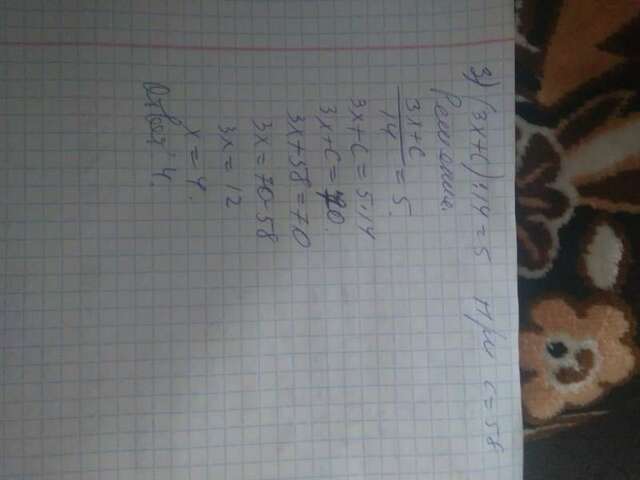 3) (3x+c):14=5 При c=58
Решение.
3x+c/14 = 5.
3x+c=5·14
3x+c=70.
3x+58=70
3x=70-58
3x=12
x=4.
Ответ: 4.